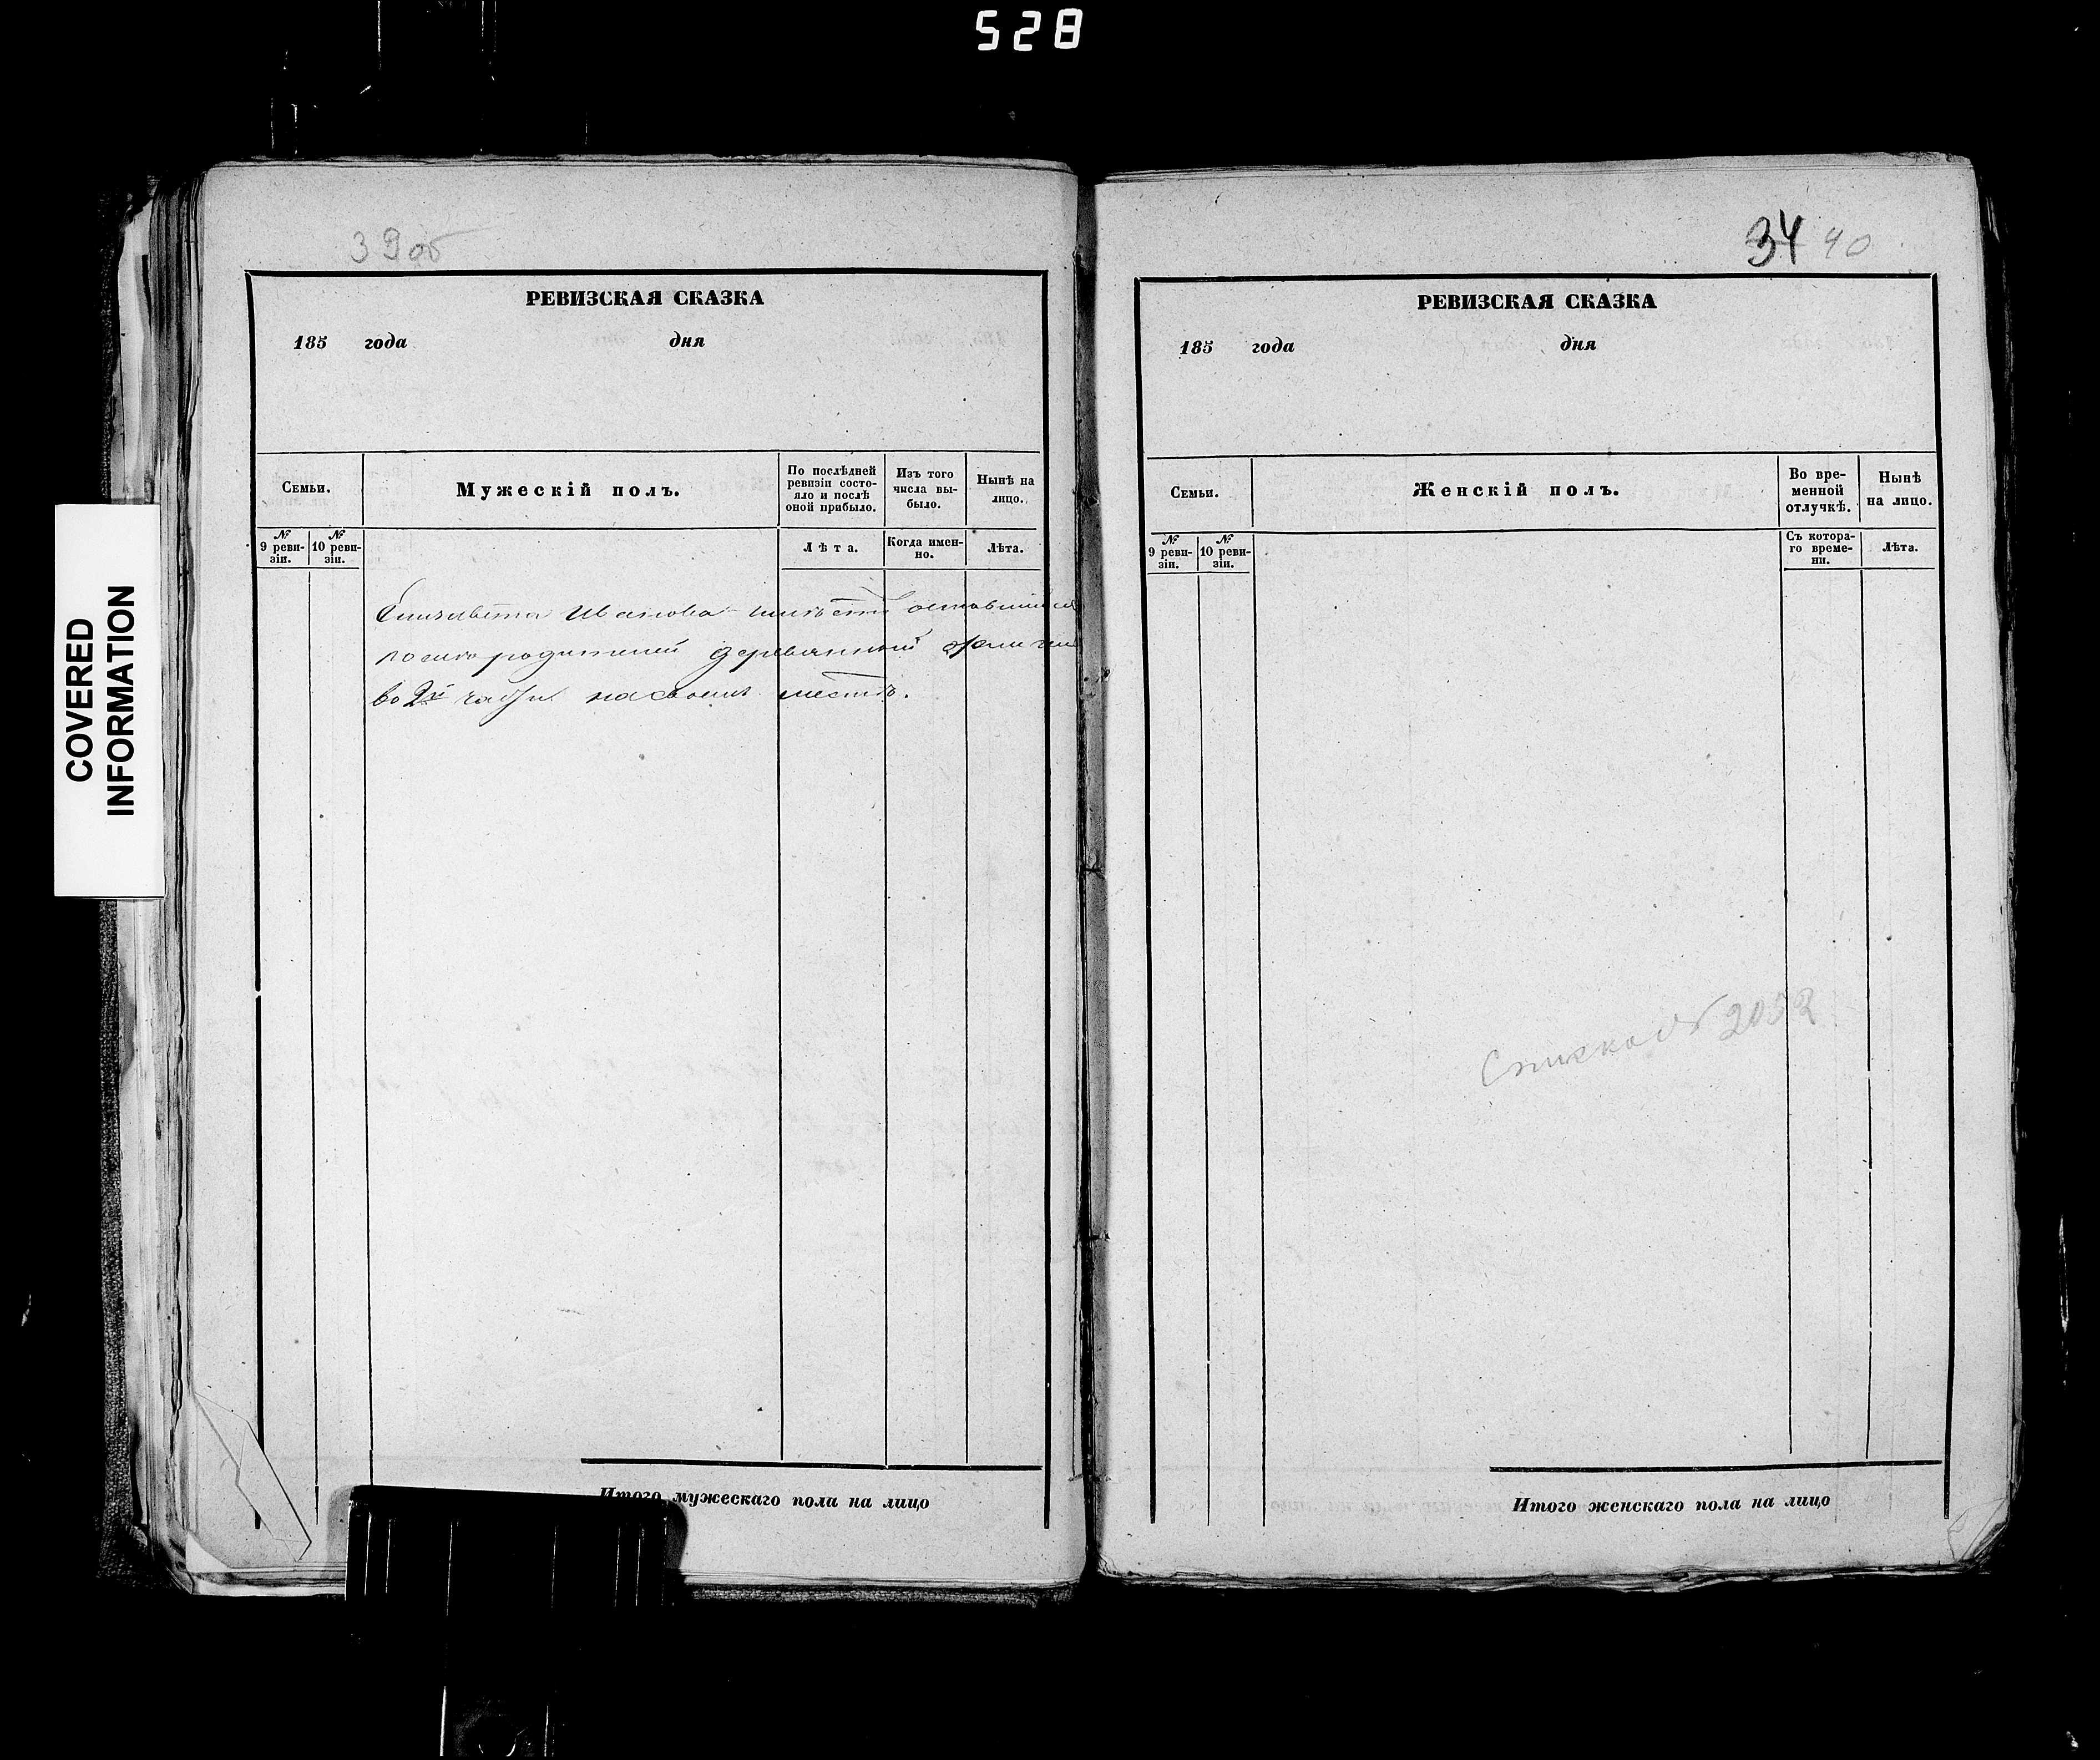 528
39об
РЕВИЗСКАЯ СКАЗКА
185 года дня
Семьи.
Мужескій полъ.
По послѣдней ревизіи состояло и послѣ оной прибыло.
Изъ того числа выбыло.
Нынѣ на лицо.
№ 9 ревизіи.
№ 10 ревизіи.
Лѣта.
Когда именно.
Лѣта.
Елизавета Иванова имѣетъ оставшийся
после родителей деревянный
во 2й части на своемъ местѣ.
Итого мужескаго пола на лицо
34 40
РЕВИЗСКАЯ СКАЗКА
185 года дня
Семьи.
Женскій полъ.
Во временной отлучкѣ.
Нынѣ на лицо.
№ 9 ревизіи.
№ 10 ревизіи.
Съ котораго времени.
Лѣта.
Итого женскаго пола на лицо
COVERED
INFORMATION